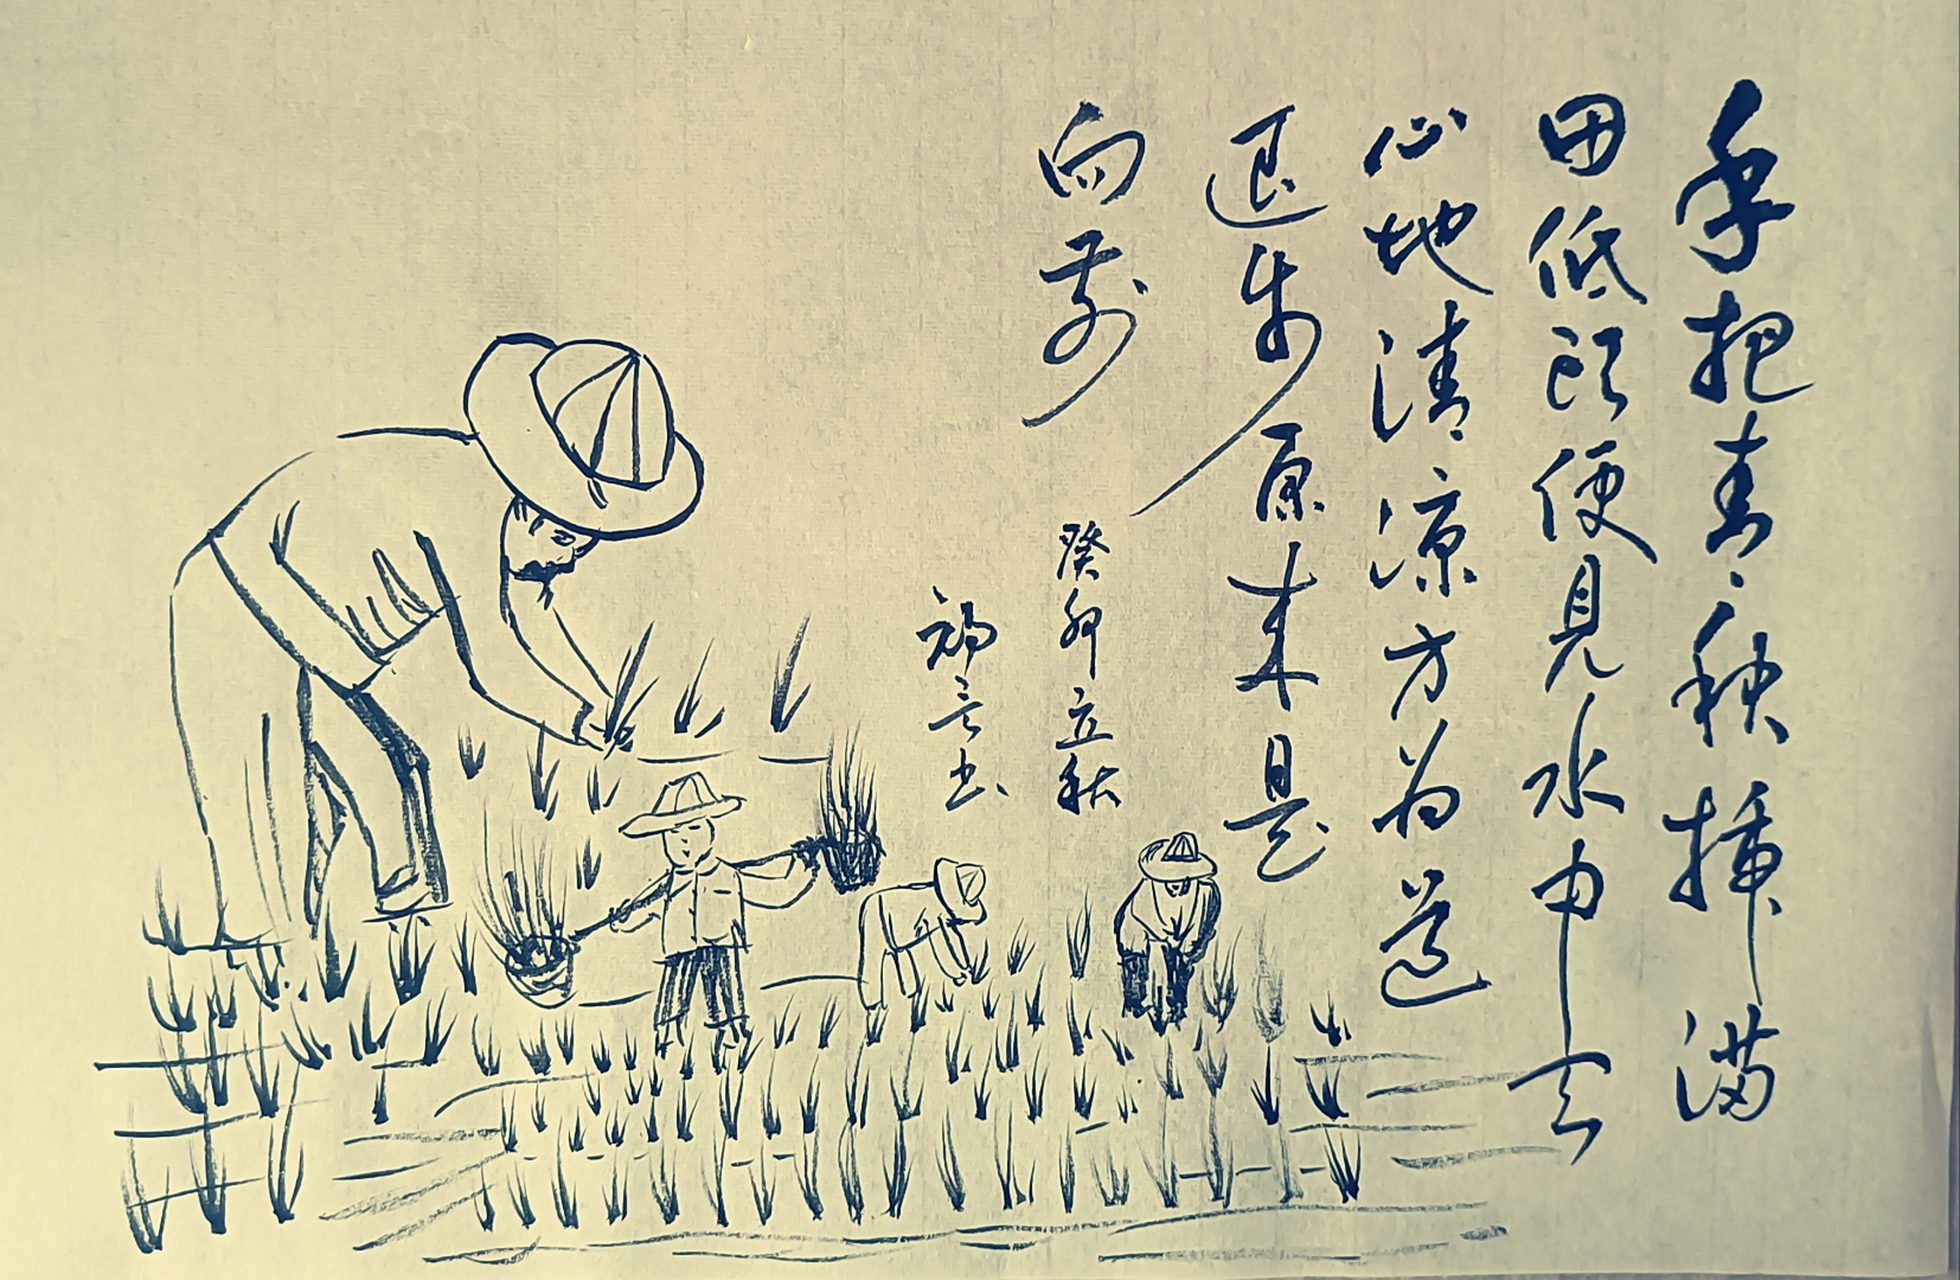 手把青秧插满
田低头便見水中天
心地清凉方为道
退步原来是
向前
癸卯立秋
福言书